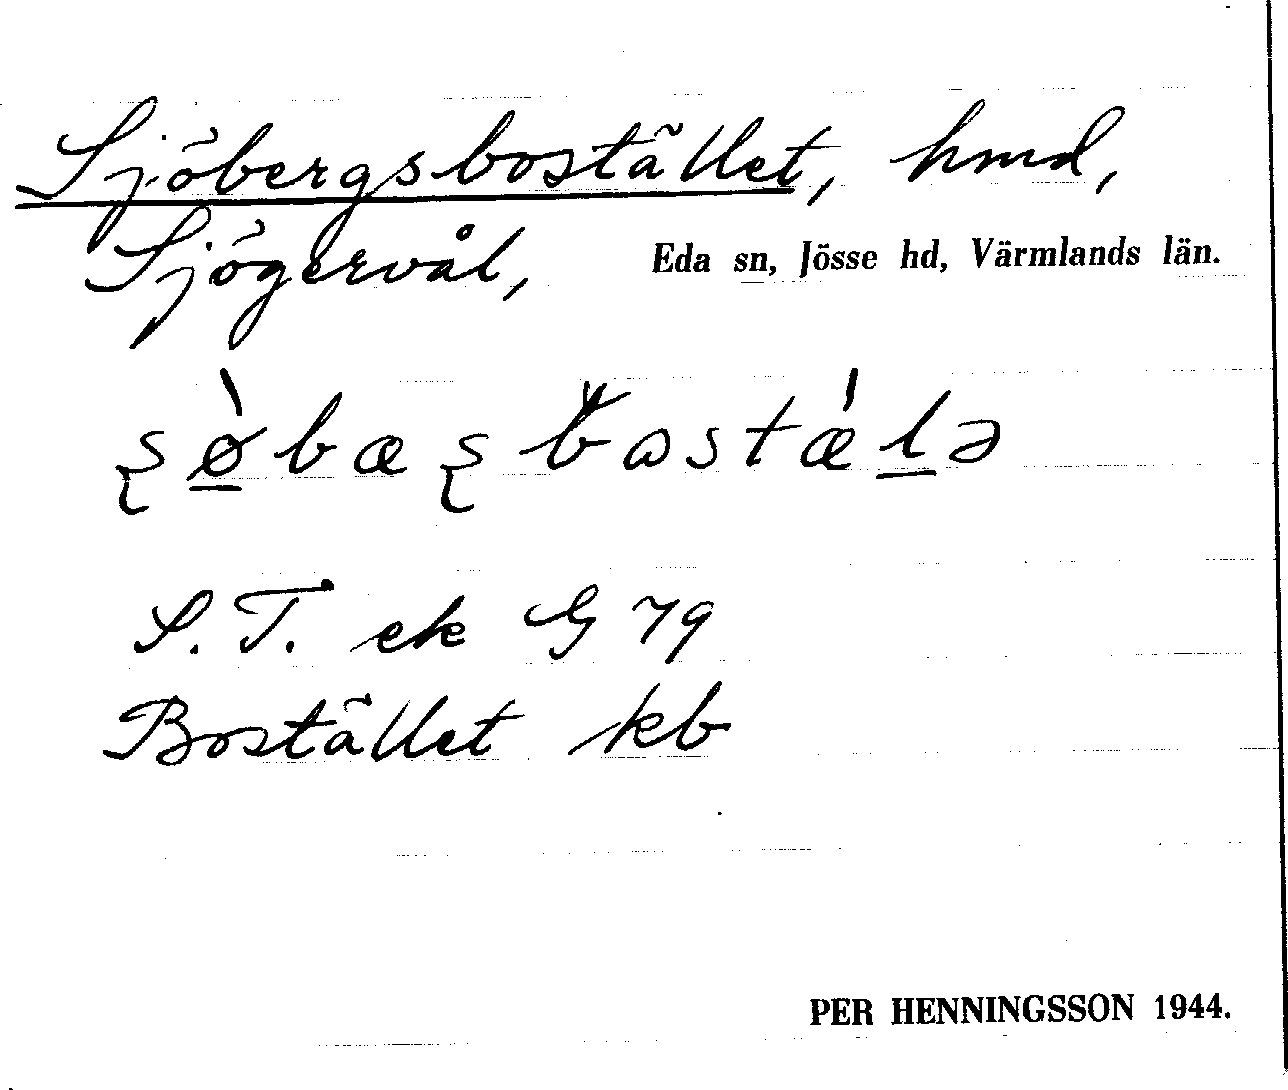 Sjöbergsbostället, hmd,
Sjögervål, Eda sn, Jösse hd, Värmlands län.
ʂø̀bæʂbɷstǽlə
S. T. ek G 79
Bostället kb
PER HENNINGSSON 1944.